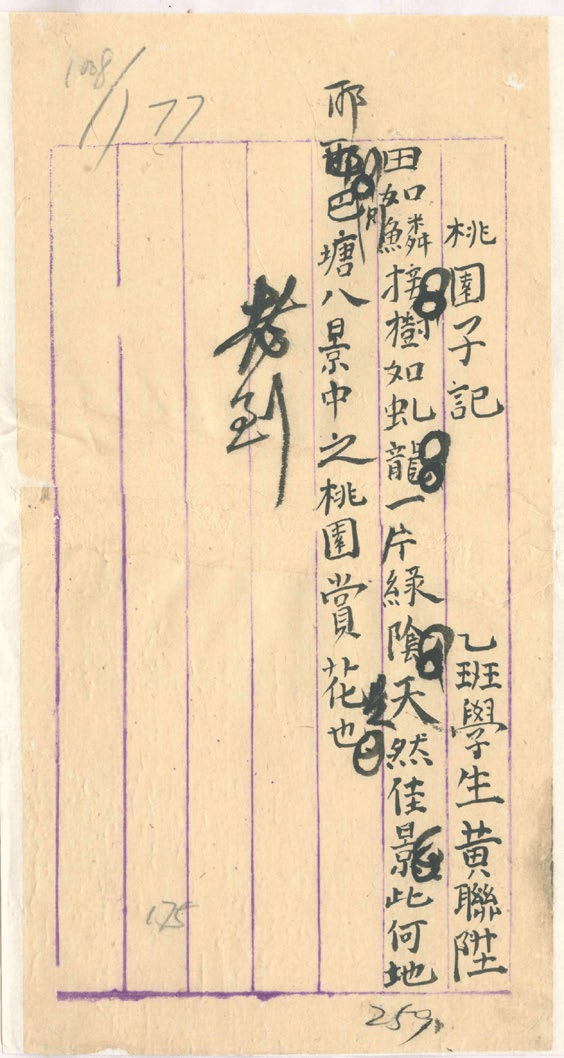 桃園子記
乙班學生黃聯陞
田如鱗接樹如虬龍一片綠陰天然佳景此何地
耶巴塘八景中之桃園賞花也
老到
177
175
259